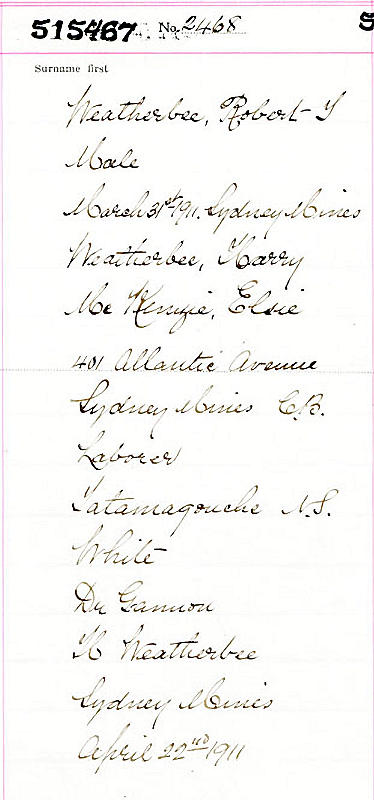 515467 No. 2468
Surname first
Weatherbee, Robert Y
Male
March 31st 1911. Sydney Mines
Weatherbee, Harry
Mc Kenzie, Elsie
401 Atlantic Avenue
Sydney Mines C.B.
Laborer
Tatamagouche N.S.
White
Dr Gannon
H Weatherbee
Sydney Mines
April 22nd 1911